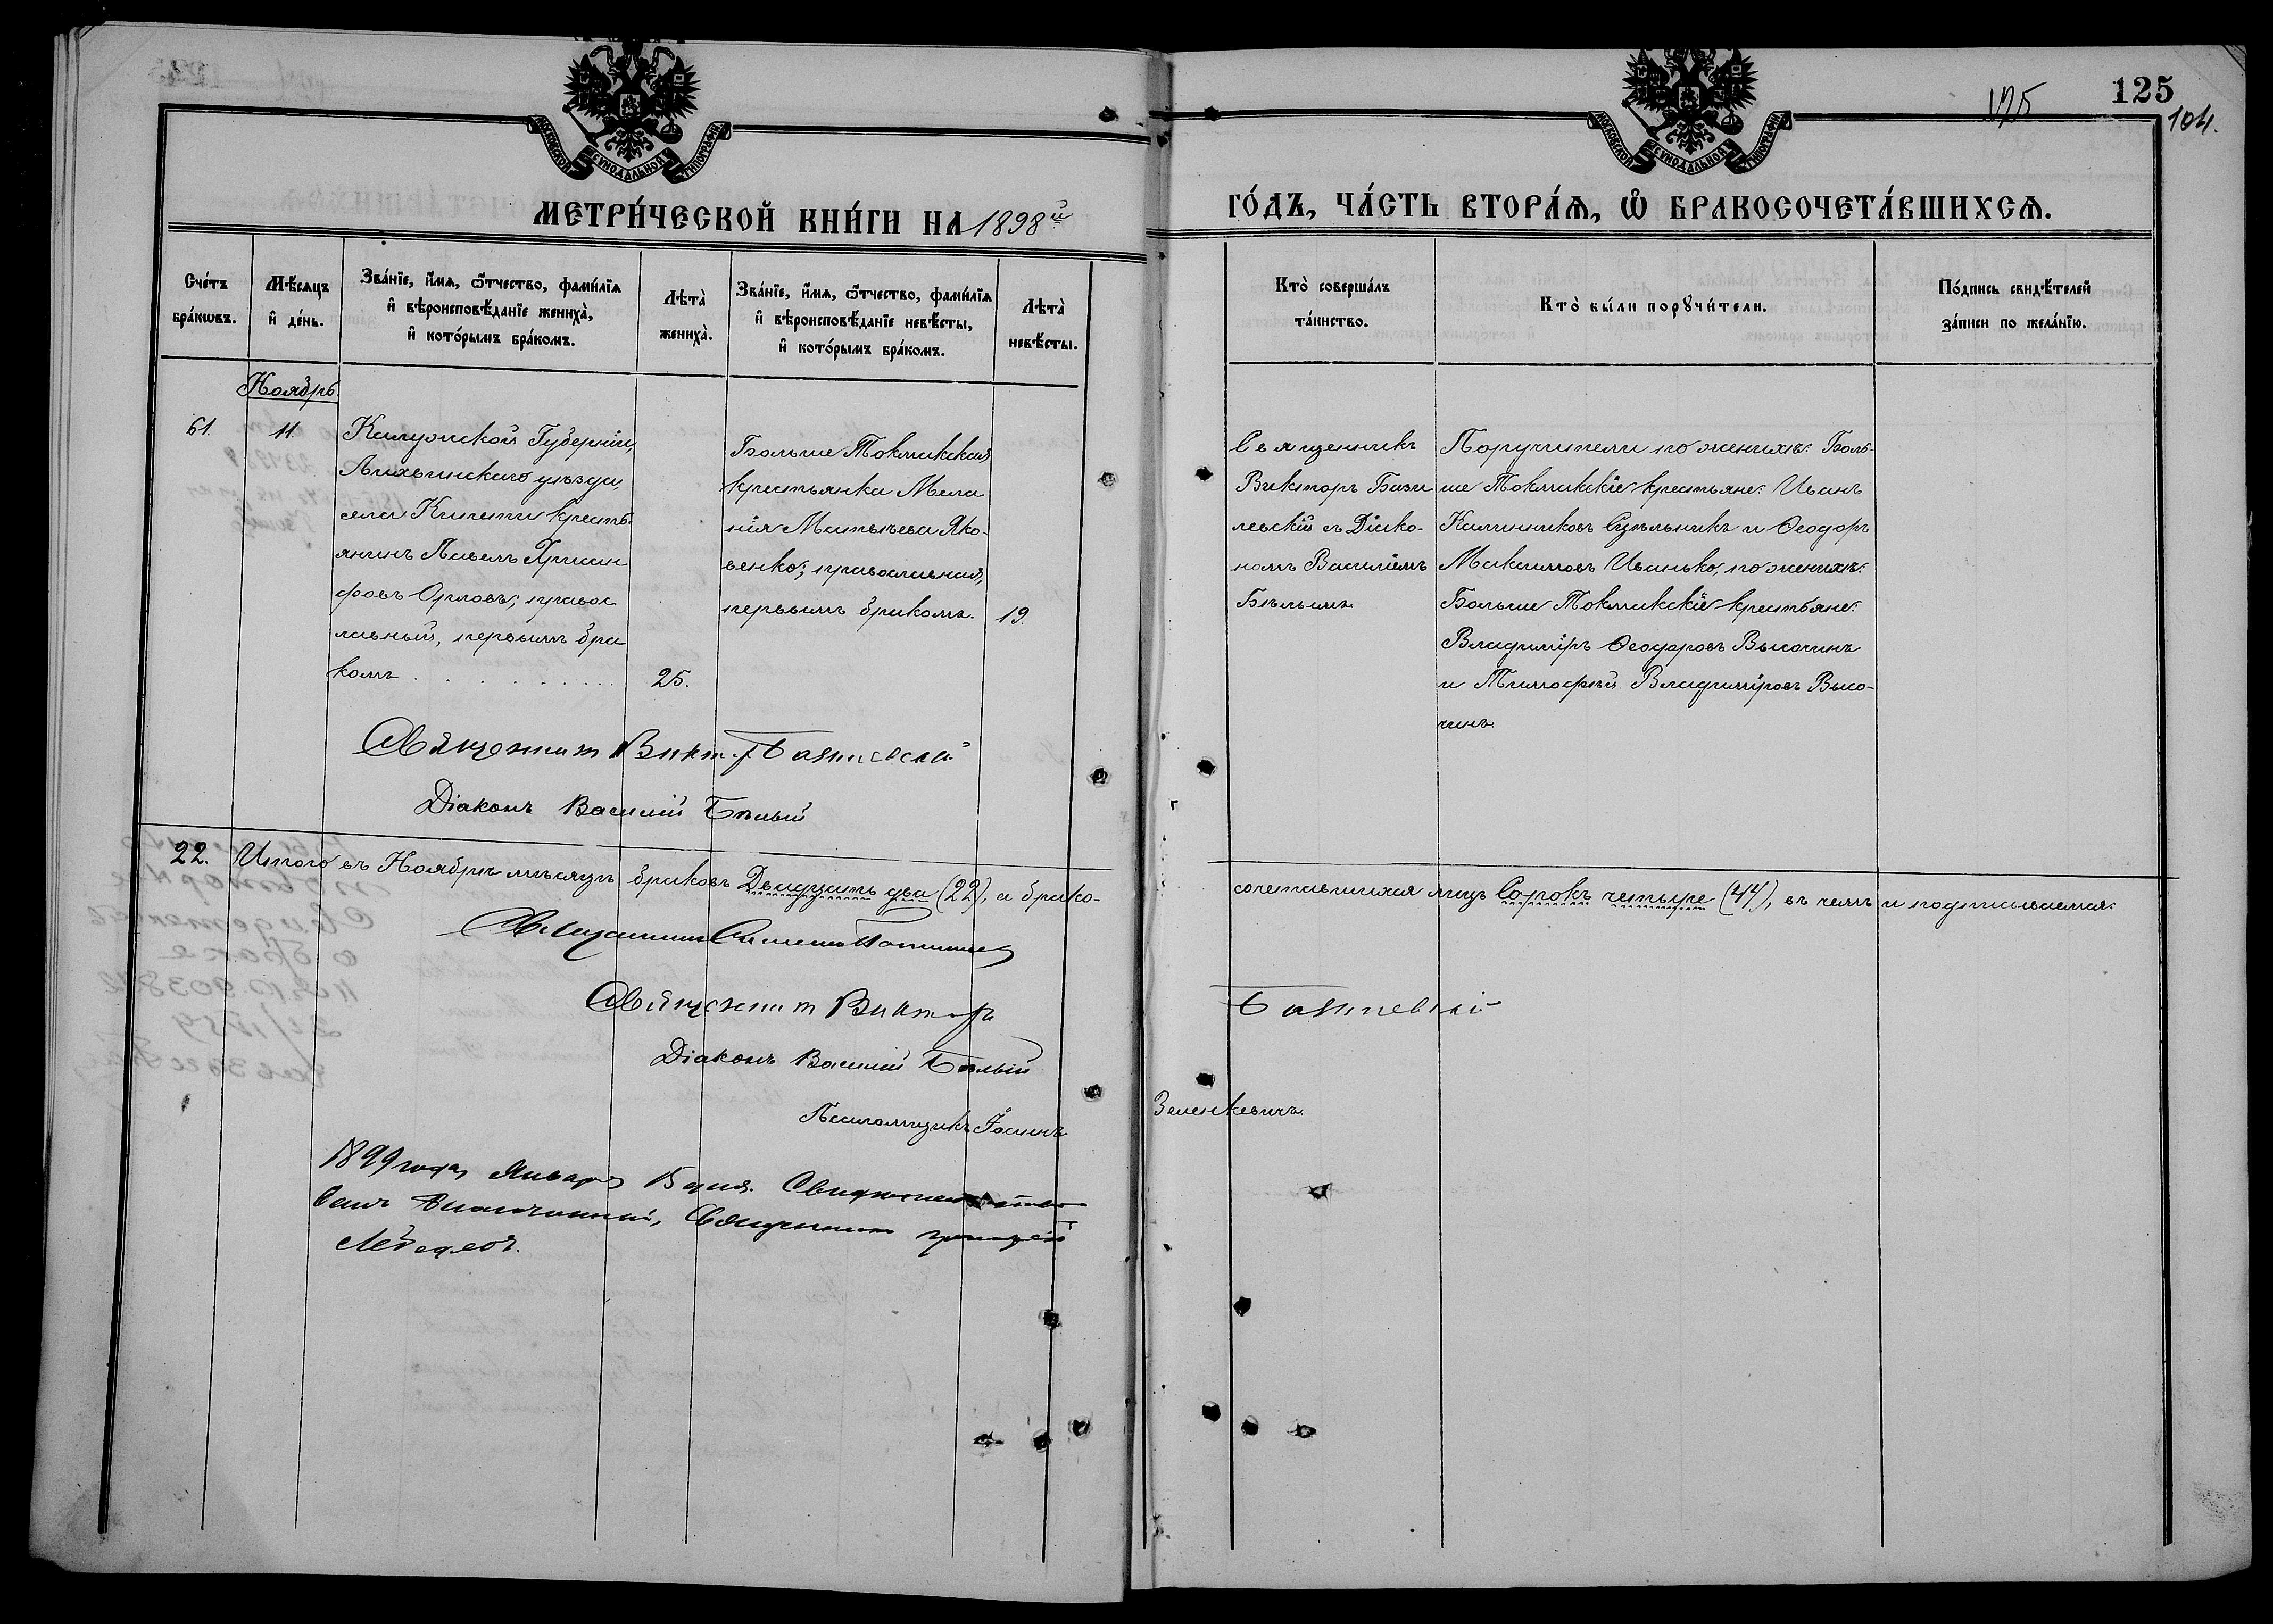 125
125
104.
МОСКОВСКОЙ СУНОДАЛЬНОЙ ТИПОГРАФІИ
МОСКОВСКОЙ СУНОДАЛЬНОЙ ТИПОГРАФІИ
МЕТРИ́ЧЕСКОЙ КНИ́ГИ НА 1898й
ГО́ДЪ, ЧА́СТЬ ВТОРА́Ѧ, Ѡ БРАКОСОЧЕТА́ВШИХСѦ.
Сче́тъ
бра́кѡвъ.
Мѣ́сяцъ
и҆ де́нь.
Зва́нїе, и҆́мя, ѻ҆́тчество, фами́лїя
и҆ вѣроисповѣ́данїе жениха̀,
и҆ кото́рымъ бра́комъ.
Лѣта̀
жениха̀.
Зва́нїе, и҆́мя, ѻ҆́тчество, фами́лїя
и҆ вѣроисповѣ́данїе невѣ́сты,
и҆ кото́рымъ бра́комъ.
Лѣта̀
невѣ́сты.
Кто̀ соверша́лъ
та́инство.
Кто̀ бы́ли порꙋчи́тели.
По́дпись свидѣ́телей
за́писи по жела́нїю.
Ноябрь
61.
11.
Калужской Губерніи,
Лихвинскаго уѣзда,
села Кипети кресть-
янинъ Павелъ Хрисан
фовъ Орловъ; правос
лавный, первымъ бра
комъ
25.
Больше Токмакская
крестьянка Мела
нія Матвѣева Яко-
венко; православная,
первымъ бракомъ.
19.
Священникъ
Викторъ Бази
левскій съ Діако-
номъ Василіемъ
Бѣлымъ
Поручители по женихѣ: Боль-
ше Токмакскіе крестьяне: Иванъ
Калинниковъ Сидѣльникъ и Ѳеодоръ
Максимовъ Иванько, по женихѣ:
Больше Токмакскіе крестьяне:
Владиміръ Ѳеодоровъ Высочинъ
и Тимофѣй Владиміровъ Высо-
чинъ.
Священникъ Викт. Базилевскій
Діаконъ Василій Бѣлый
22. Итого въ Ноябрѣ мѣсяцѣ браковъ Двадцать два (22), а брако-
сочетавшихся лицъ Сорокъ четыре (44), въ чемъ и подписываемся:
Священникъ
Священникъ Викторъ
Базилевскій
Діаконъ Василій Бѣлый
Псаломщикъ Іоаннъ
Зеленкевичъ.
1899 года, Января 15 дня.
Благочинный, Священникъ
Лебедевъ.